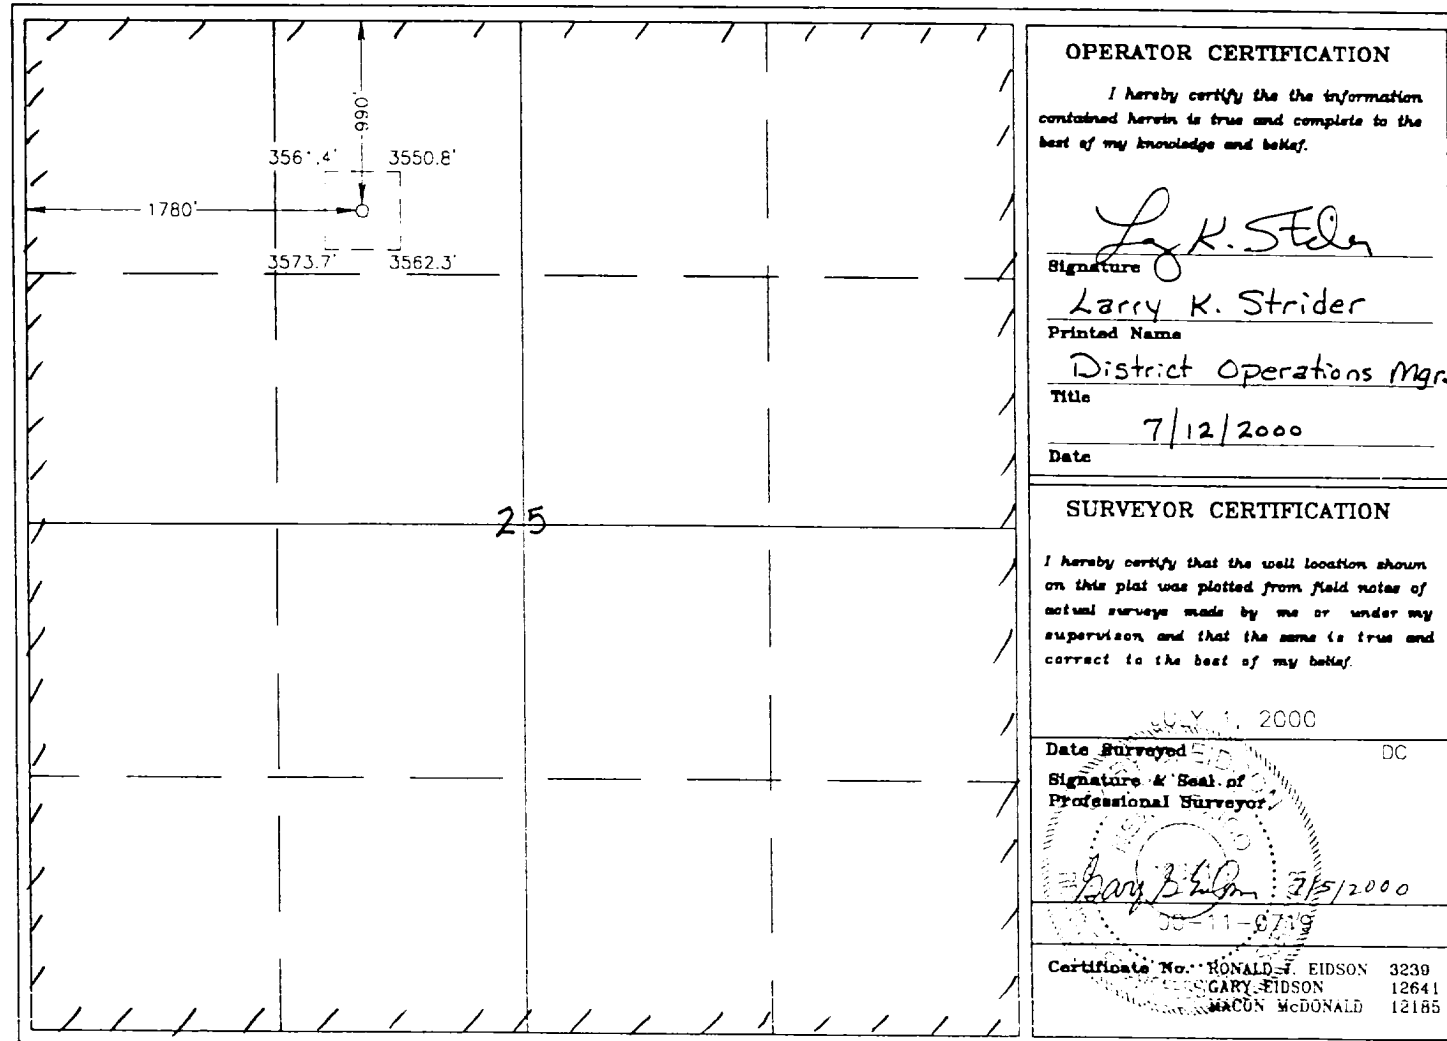 990'
3550.8'
1780'
3573.7'
3562.3'
25
OPERATOR CERTIFICATION
I hereby certify the the information
contained herein is true and complete to the
best of my knowledge and belief.
Signature
Larry K. Strider
Printed Name
District Operations Mgr.
Title
7/12/2000
Date
SURVEYOR CERTIFICATION
I hereby certify that the well location shown
on this plat was plotted from field notes of
actual surveys made by me or under my
supervison, and that the same is true and
correct to the best of my belief.
JULY 1, 2000
Date Surveyed DC
Signature & Seal of
Professional Surveyor
7/5/2000
Certificate No. RONALD J. EIDSON 3239
GARY EIDSON 12641
MACON McDONALD 12185